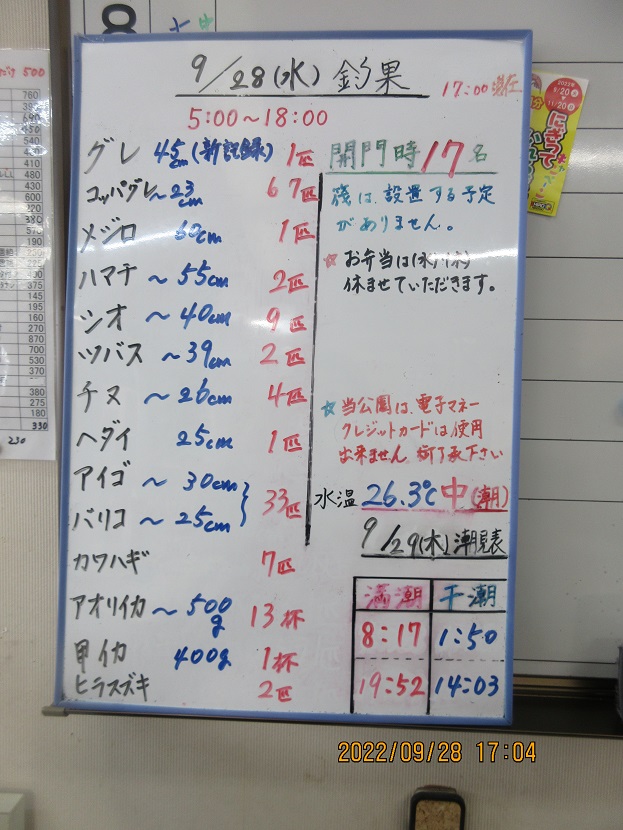 9/28(水) 釣果
17:00 現在
5:00~18:00
グレ 45cm (新記録) 1匹
コッパグレ ~23cm 67匹
メジロ 60cm 1匹
ハマチ ~55cm 2匹
シオ ~40cm 9匹
ツバス ~39cm 2匹
チヌ ~26cm 4匹
ヘダイ 25cm 1匹
アイゴ ~30cm
バリコ ~25cm
33匹
カワハギ 7匹
アオリイカ ~500g 13杯
甲イカ 400g 1杯
ヒラスズキ 2匹
開門時 17名
筏は、設置する予定
がありません。
☆ お弁当は(水)(木)
休ませていただきます。
☆ 当公園は、電子マネー
クレジットカードは使用
出来ません 御了承下さい
水温 26.3℃ 中(潮)
9/29(木) 潮見表
満潮 干潮
8:17 1:50
19:52 14:03
2022/09/28 17:04
8
500
760
330
230
2022年
9/20
11/20
にぎって